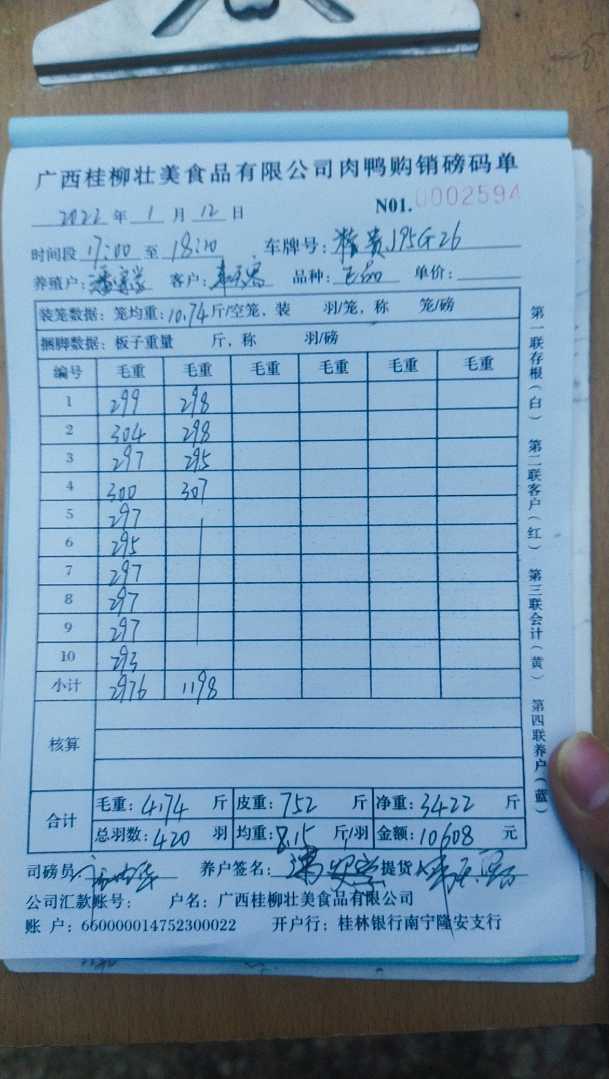 广西桂柳壮美食品有限公司肉鸭购销磅码单
2022年1月12日 N01.0002594
时间段 17:00 至 18:20 车牌号: 贵J95G26
养殖户: 客户: 品种: 单价:
装笼数据: 笼均重:10.74斤/空笼, 装 羽/笼, 称 笼/磅
捆脚数据: 板子重量 斤, 称 羽/磅
编号 毛重 毛重 毛重 毛重 毛重 毛重
1 299 298
2 304 298
3 297 295
4 300 307
5 297
6 295
7 297
8 297
9 297
10 293
小计 2976 1198
核算
合计 毛重: 4174 斤 皮重: 752 斤 净重: 3422 斤
总羽数: 420 羽 均重: 8.15 斤/羽 金额: 10608 元
司磅员 养户签名: 提货
公司汇款账号: 户名: 广西桂柳壮美食品有限公司
账 户: 660000014752300022 开户行: 桂林银行南宁隆安支行
第一联存根(白) 第二联客户(红) 第三联会计(黄) 第四联养户(蓝)